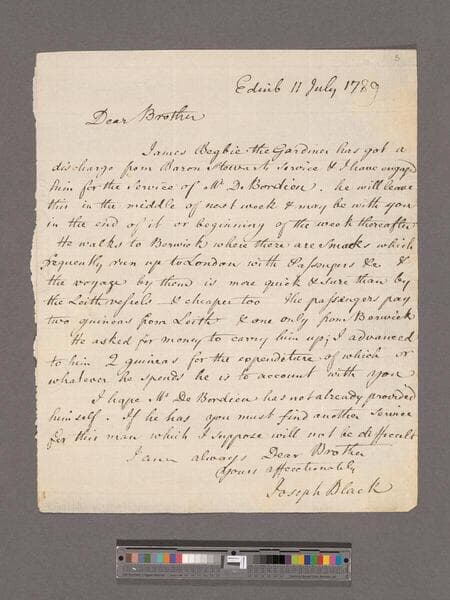 5
Edinb 11 July 1789
Dear Brother
James Begbie the Gardner has got a
discharge from Baron Stewarts service & I have engagd
him for the service of Mr De Bordieu. he will leave
this in the middle of next week & may be with you
in the end of it or beginning of the week thereafter
He walks to Berwick where there are smacks which
frequently run up to London with Passengers &c &
the voyage by them is more quick & sure than by
the Leith vessels & cheaper too the passengers pay
two guineas from Leith & one only from Berwick
He asked for money to carry him up; I advanced
to him 2 guineas for the expenditure of which or
whatever he spends he is to account with you
I hope Mr De Bordieu has not already provided
himself. If he has you must find another service
for this man which I suppose will not be difficult
I am always Dear Brother
Yours affectionately
Joseph Black